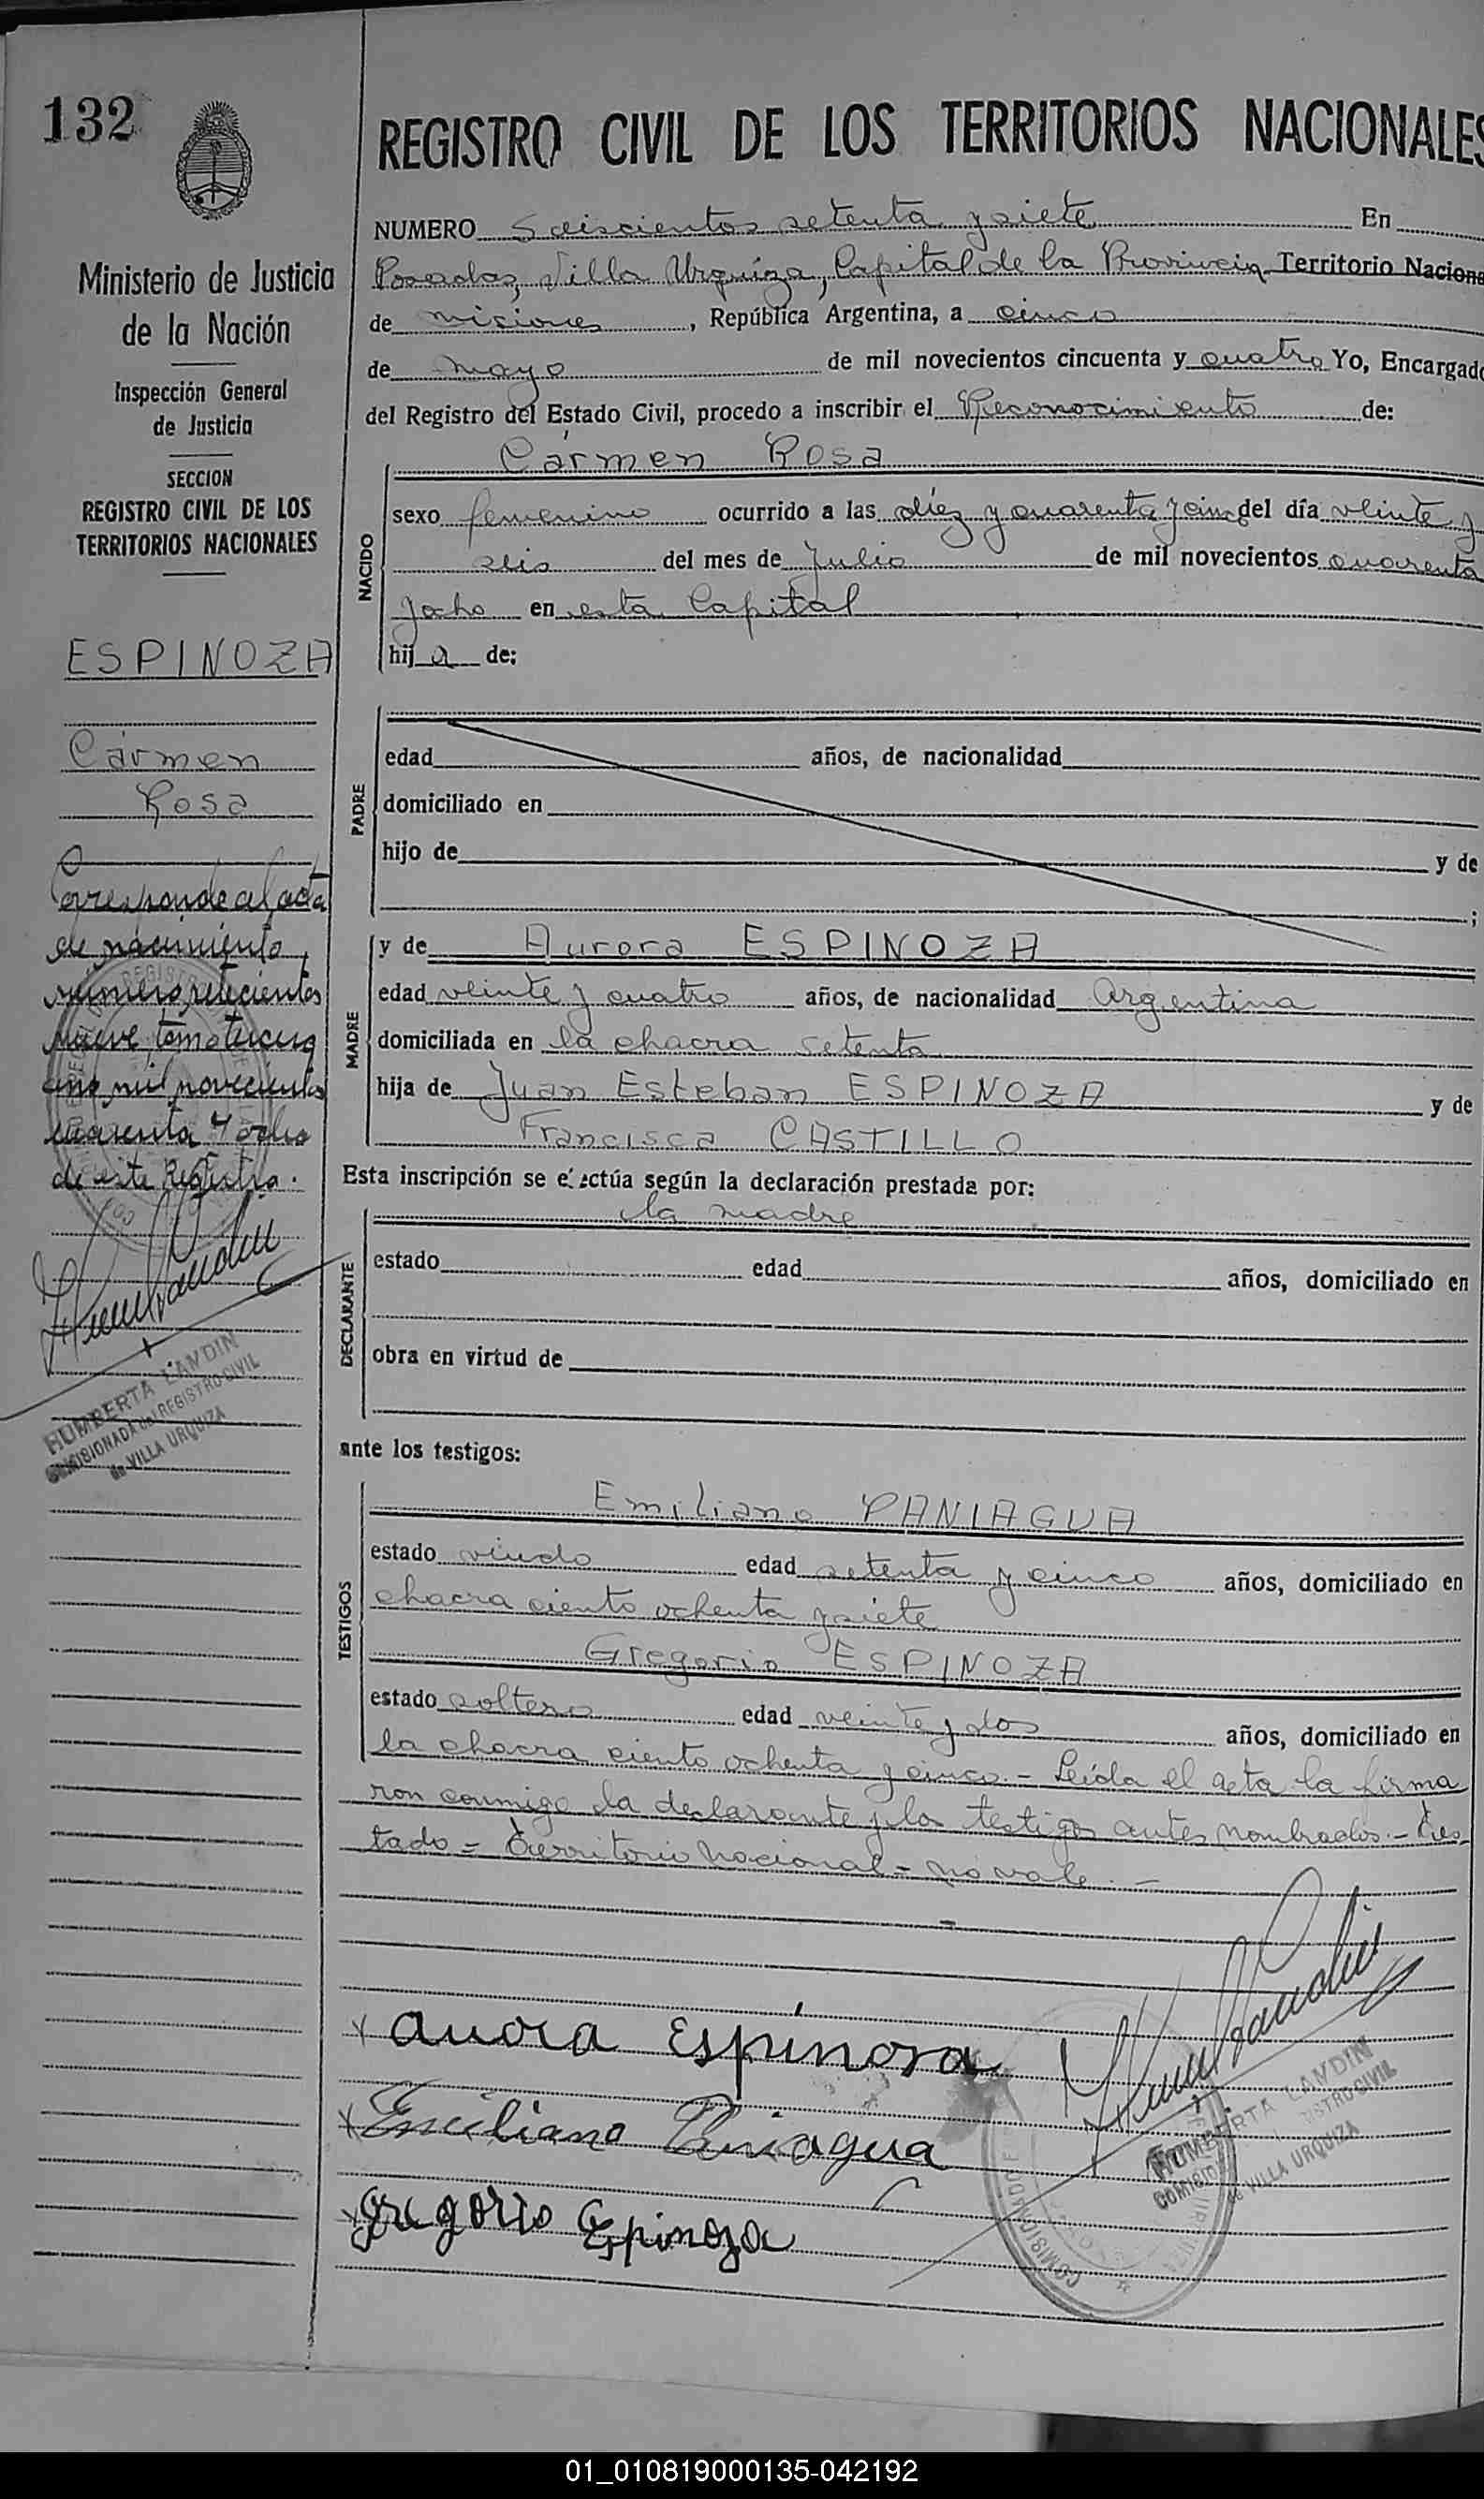 132
Ministerio de Justicia
de la Nación
Inspección General
de Justicia
SECCION
REGISTRO CIVIL DE LOS
TERRITORIOS NACIONALES
ESPINOZA
Cármen
Rosa
Corresponde al acta
de nacimiento
número setecientos
nueve, tomo tercero
año mil novecientos
cuarenta y ocho
de este Registro.
HUMBERTA LANDIN
COMISIONADA del REGISTRO CIVIL
de VILLA URQUIZA
REGISTRO CIVIL DE LOS TERRITORIOS NACIONALES
NUMERO Seiscientos setenta y siete En
Posadas, Villa Urquiza, Capital de la Provincia Territorio Naciona
de misiones, República Argentina, a cinco
de mayo de mil novecientos cincuenta y cuatro Yo, Encargado
del Registro del Estado Civil, procedo a inscribir el Reconocimiento de:
Cármen Rosa
NACIDO
sexo femenino ocurrido a las diez y cuarenta y cinco del día veinte y
seis del mes de Julio de mil novecientos cuarenta
y ocho en esta Capital
hij a de:
PADRE
edad años, de nacionalidad
domiciliado en
hijo de y de
;
MADRE
y de Aurora ESPINOZA
edad veinte y cuatro años, de nacionalidad Argentina
domiciliada en la chacra setenta
hija de Juan Esteban ESPINOZA y de
Francisca CASTILLO
Esta inscripción se efectúa según la declaración prestada por:
la madre
DECLARANTE
estado edad años, domiciliado en
obra en virtud de
ante los testigos:
TESTIGOS
Emiliano PANIAGUA
estado viudo edad setenta y cinco años, domiciliado en
chacra ciento ochenta y siete
Gregorio ESPINOZA
estado soltero edad veinte y dos años, domiciliado en
la chacra ciento ochenta y cinco.- Leída el acta la firma
ron conmigo la declarante y los testigos antes nombrados.- Tes
tado = Territorio Nacional = no vale.-
x Auora Espinosa
x Emiliano Paniagua
x Gregorio Espinoza
HUMBERTA LANDIN
de VILLA URQUIZA
01_010819000135-042192